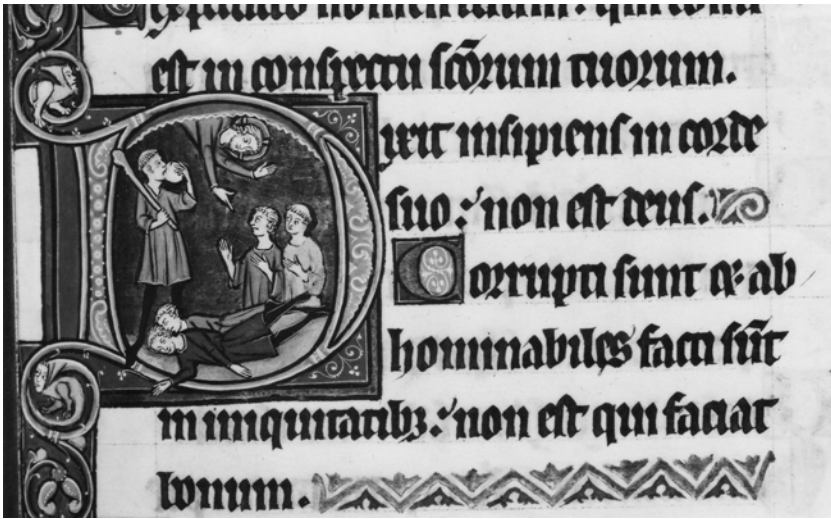 est in conspectu scōrum tuorum.
Dixit insipiens in corde
suo: non est deus.
Corrupti sunt & ab
hominabiles facti sūt
in iniquitatibꝫ: non est qui faciat
bonum.